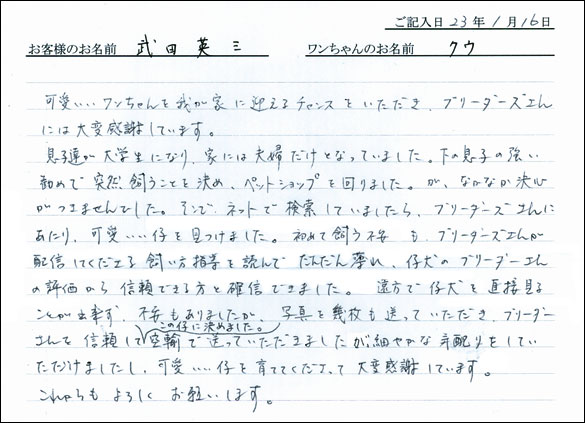 ご記入日 23年 1月 16日
お客様のお名前 武田英三 ワンちゃんのお名前 クウ
可愛いいワンちゃんを我が家に迎えるチャンスをいただき、ブリーダーズさん
には大変感謝しています。
息子達が大学生になり、家には夫婦だけとなっていました。下の息子の強い
勧めで突然飼うことを決め、ペットショップを回りました。が、なかなか決心
がつきませんでした。そこで、ネットで検索していましたら、ブリーダーズさんに
あたり、可愛いい仔を見つけました。初めて飼う不安も ブリーダーズさんが
配信してくださる飼い方指導を読んでだんだん薄れ、仔犬のブリーダーさん
の評価から信頼できる方と確信できました。遠方で仔犬を直接見る
ことが出来ず、不安もありましたが、写真を幾枚も送っていただき、ブリーダー
この仔に決めました。
さんを信頼して空輸で送っていただきましたが細やかな手配りをしてい
ただけましたし、可愛いい仔を育ててくださって大変感謝しています。
これからもよろしくお願いします。